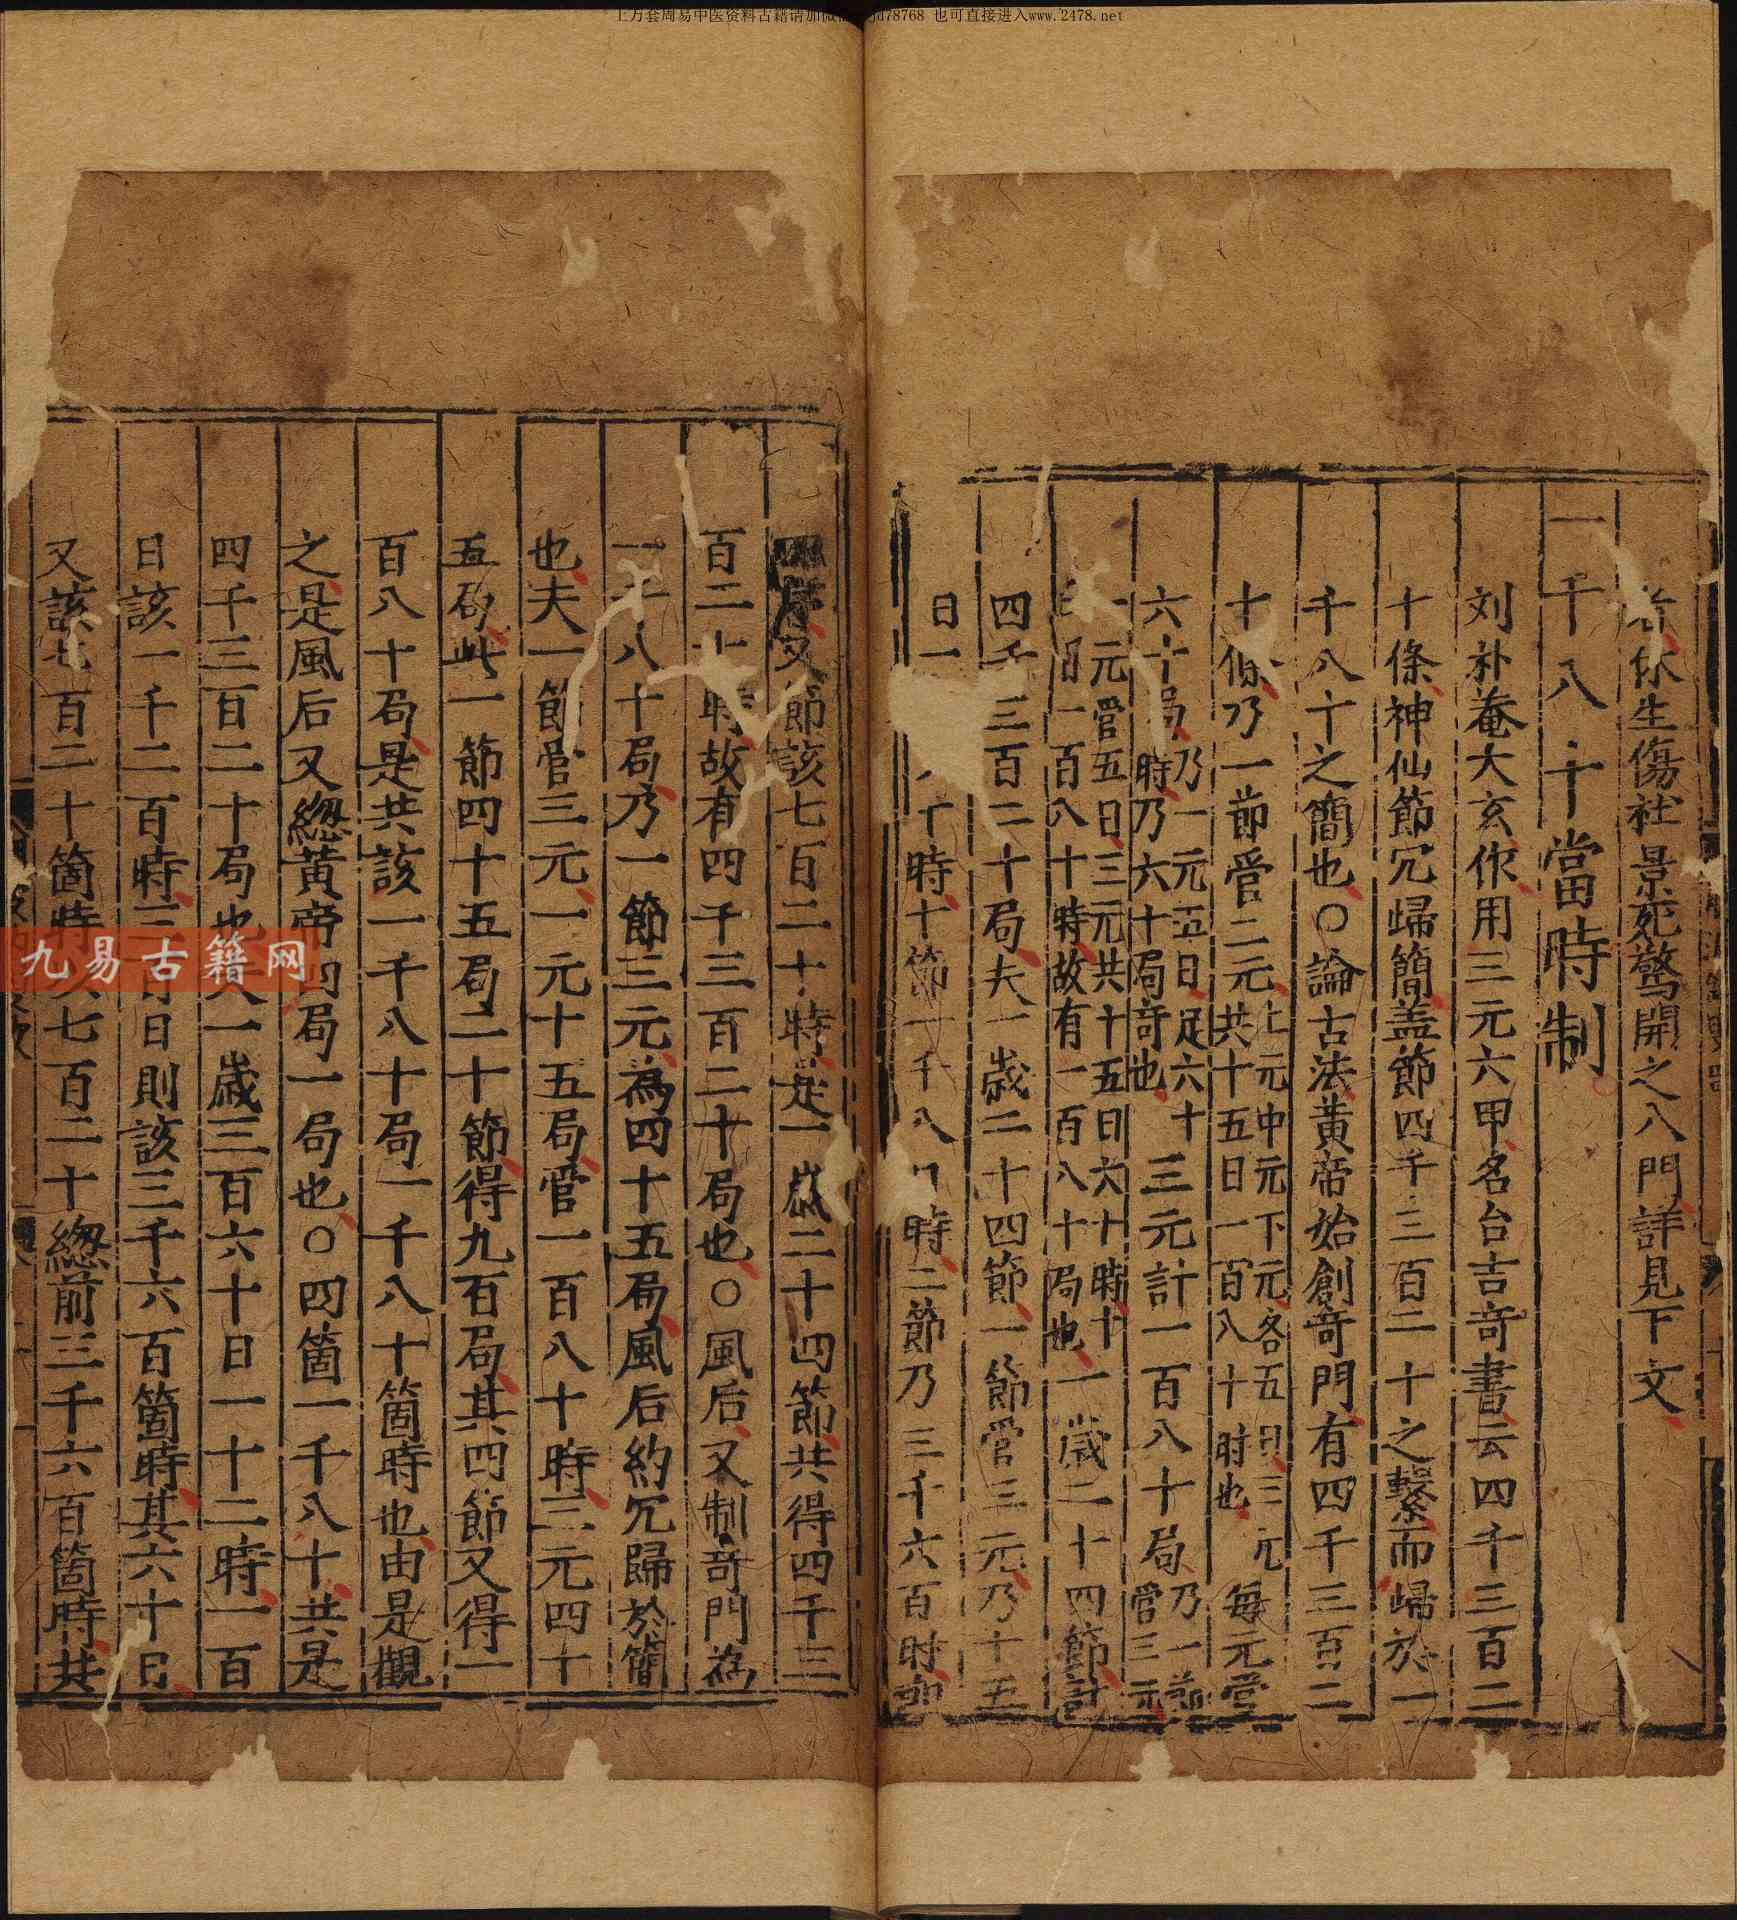 休生傷杜景死驚開之八門詳見下文
一千八十當時制
刘朴菴大玄作用三元六甲名台吉奇書云四千三百二
十條神仙節冗歸簡盖節四千三百二十之繫而歸於一
千八十之簡也〇論古法黃帝始創奇門有四千三百二
十條乃一節管三元上元中元下元各五日三元共十五日一百八十时也每元管
六十局乃一元五日足六十時乃六十局奇也三元計一百八十局乃一節管三元
一元管五日三元共十五日六十時十一百八十時故有一百八十局也一歲二十四節計
四千三百二十局夫一歲二十四節一節管三元乃十五
日一十時十節一千八時二節乃三千六百时
又節該七百二十時是一歲二十四節共得四千三
百二十時故有四千三百二十局也〇風后又制奇門為
一千八十局乃一節三元為四十五局風后約冗歸於簡
也夫一節管三元一元十五局管一百八十時三元四十
五局此一節四十五局二十節得九百局其四節又得一
百八十局是共該一千八十局一千八十箇時也由是觀
之是風后又緫黃帝四局一局也〇四箇一千八十共是
四千三百二十局也夫一歲三百六十日一十二時一百
日該一千二百時三百日則該三千六百箇時其六十日
又該七百二十箇時以七百二十緫前三千六百箇時共
九易古籍网
上万套周易中医资料古籍请加微信jd78768 也可直接进入www.2478.net